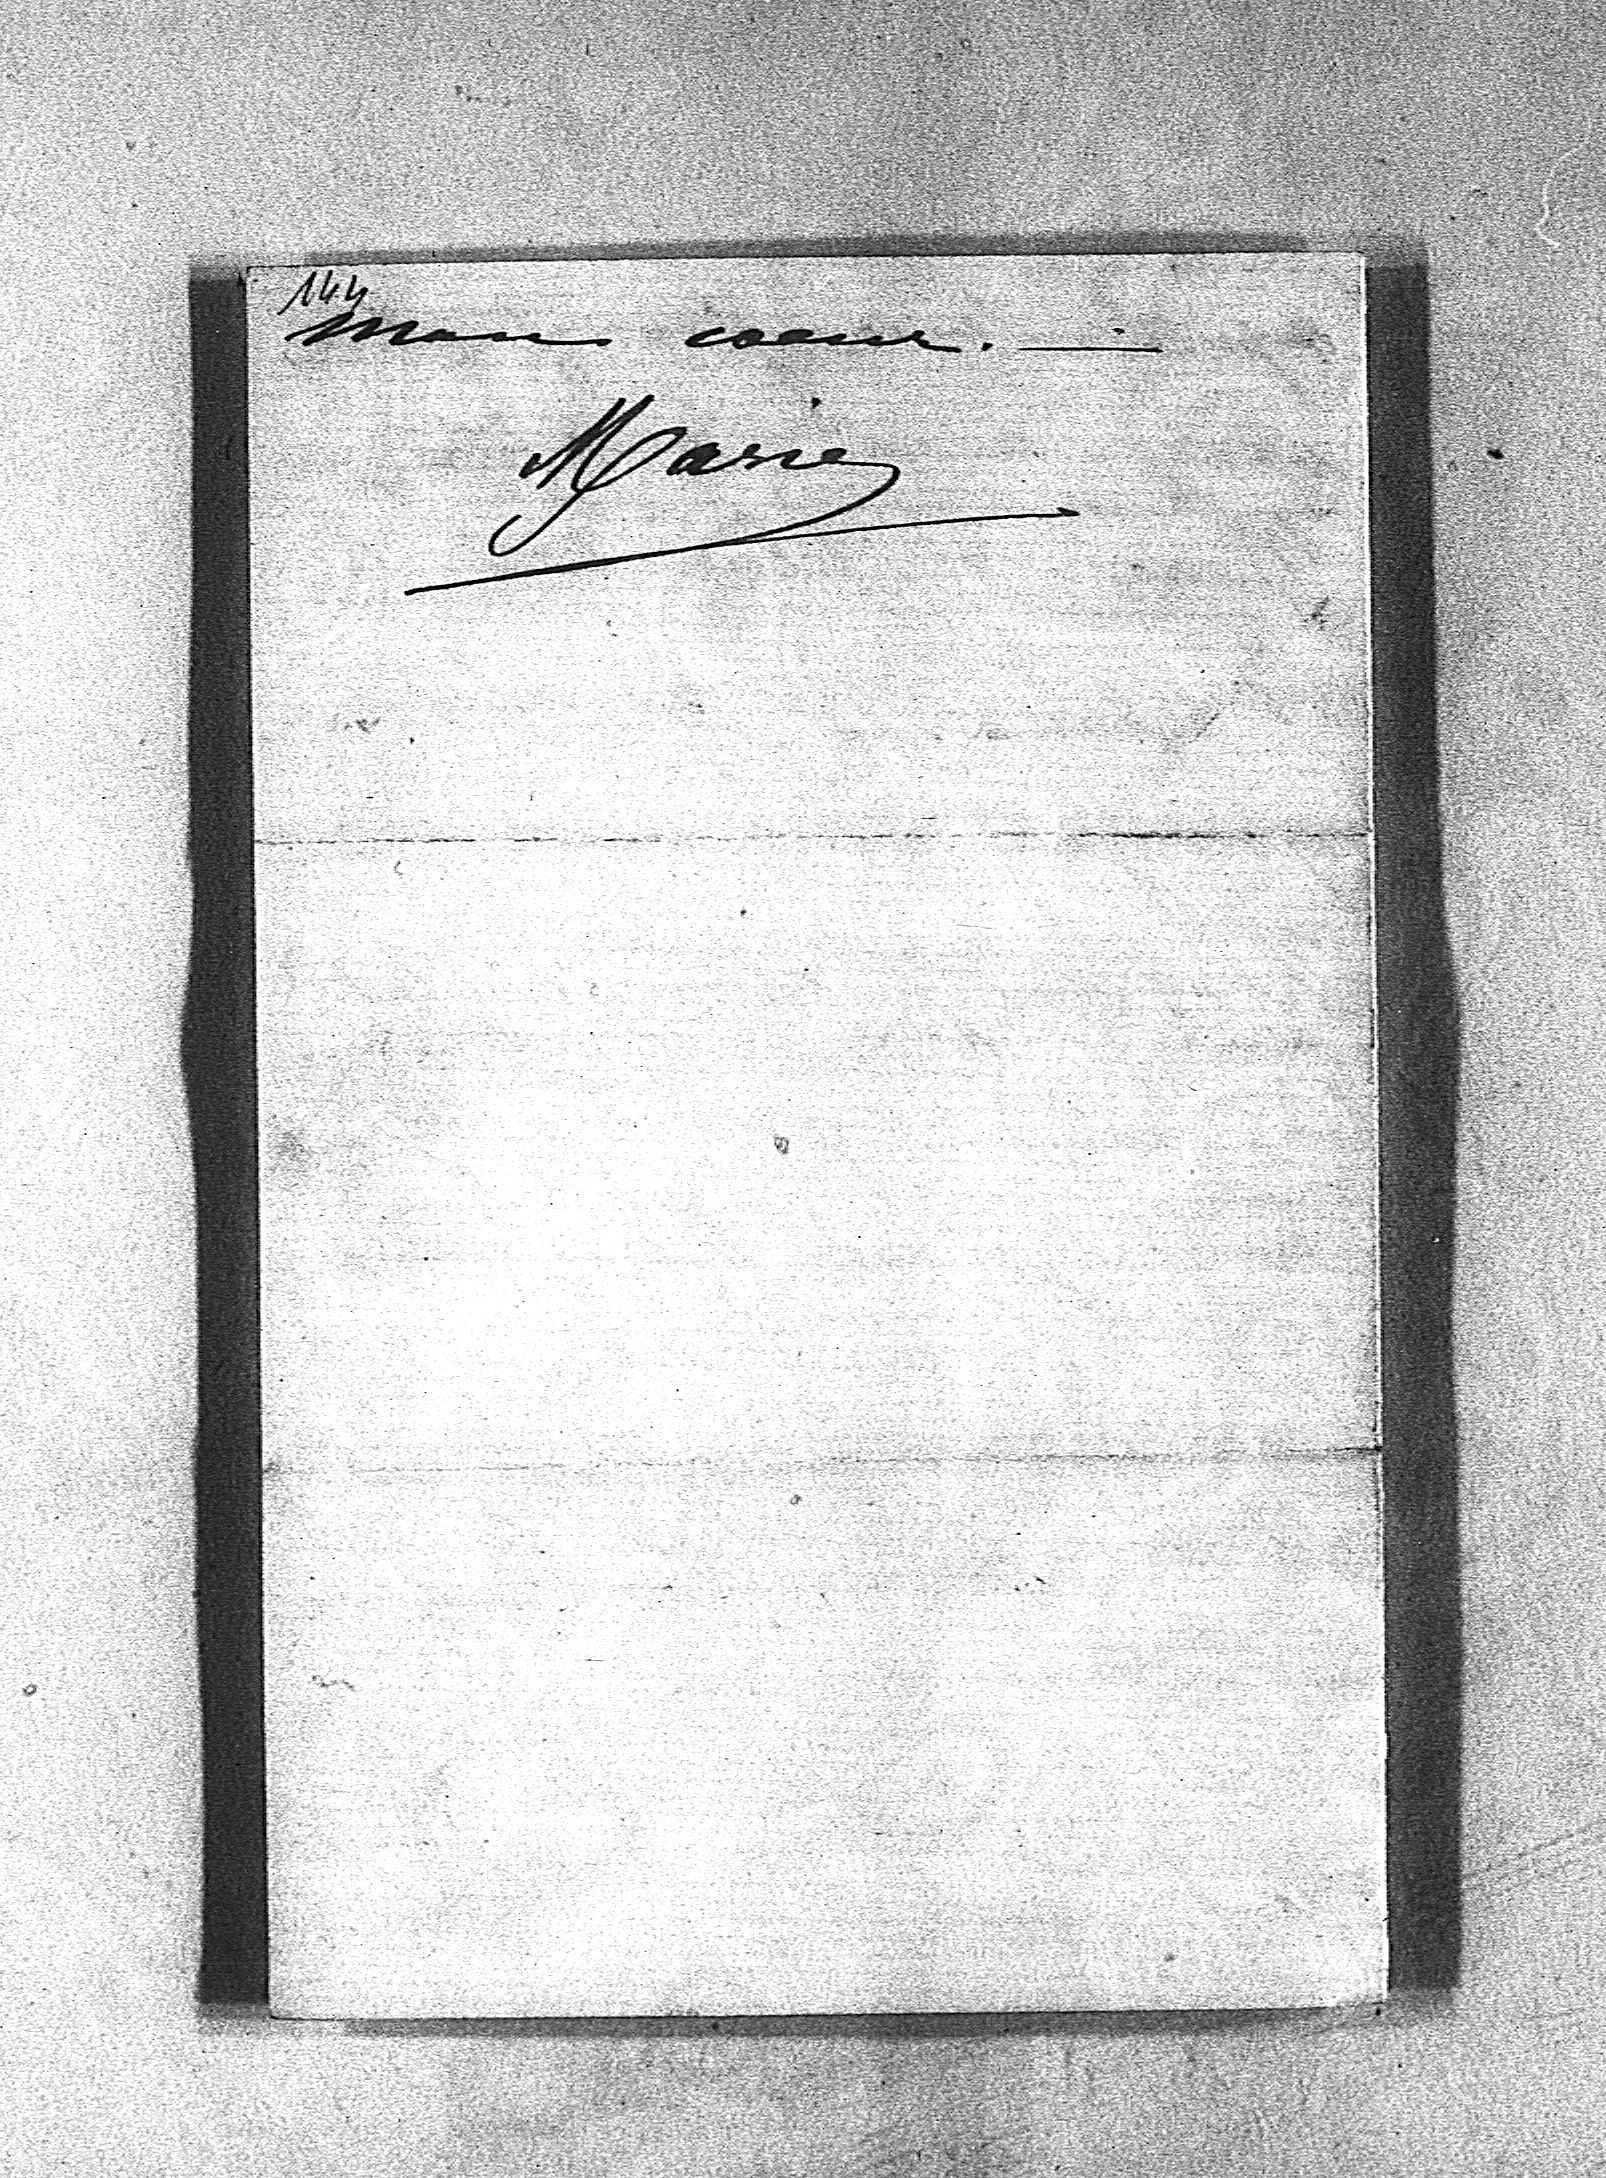 144
mon coeur. —
Marie